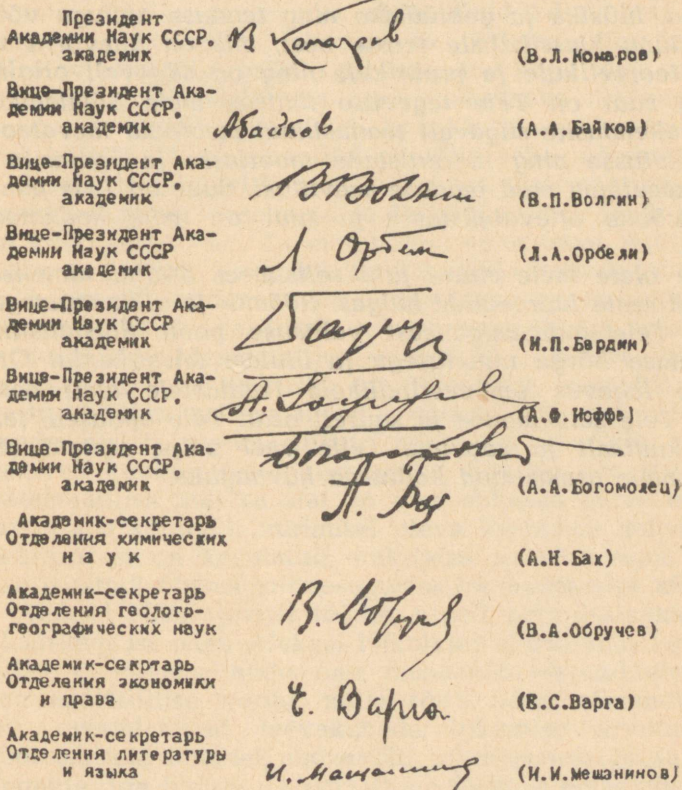 Президент
Академии Наук СССР. В Комаров
академик (В.Л.Комаров)
Вице-Президент Ака-
демии Наук СССР.
академик Абайков (А.А.Байков)
Вице-Президент Ака-
демии Наук СССР.
академик ВВолгин (В.П.Волгин)
Вице-Президент Ака-
демии Наук СССР Л Орбели (Л.А.Орбели)
академик
Вице-Президент Ака-
демии Наук СССР
академик (И.П.Бардин)
Вице-Президент Ака-
демии Наук СССР.
академик А. (А.Ф.Иоффе)
Вице-Президент Ака-
демии Наук СССР.
академик (А.А.Богомолец)
А. Бах
Академик-секретарь
Отделения химических
наук (А.Н.Бах)
Академик-секретарь
Отделения геолого-
географических наук В. (В.А.Обручев)
Академик-секртарь
Отделения экономики
и права Е. Варга (Е.С.Варга)
Академик-секретарь
Отделения литературы
и языка И. (И.И.Мещанинов)